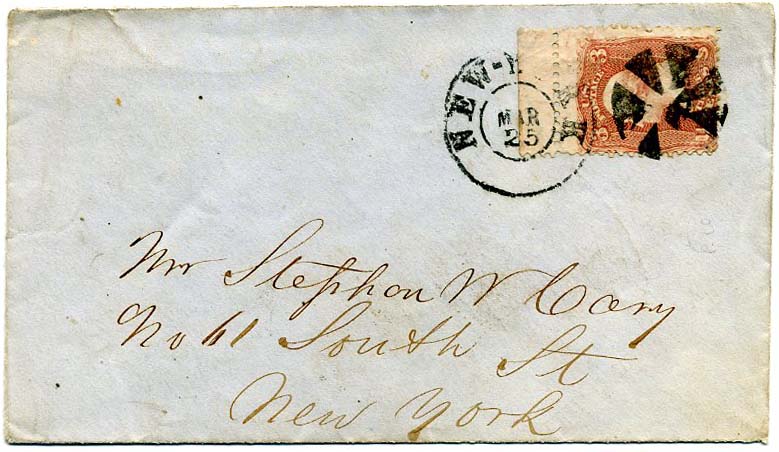 NEW-Y
MAR
25
3
U.S. POSTAGE
Mr Stephen W Cary
No 61 South St
New York